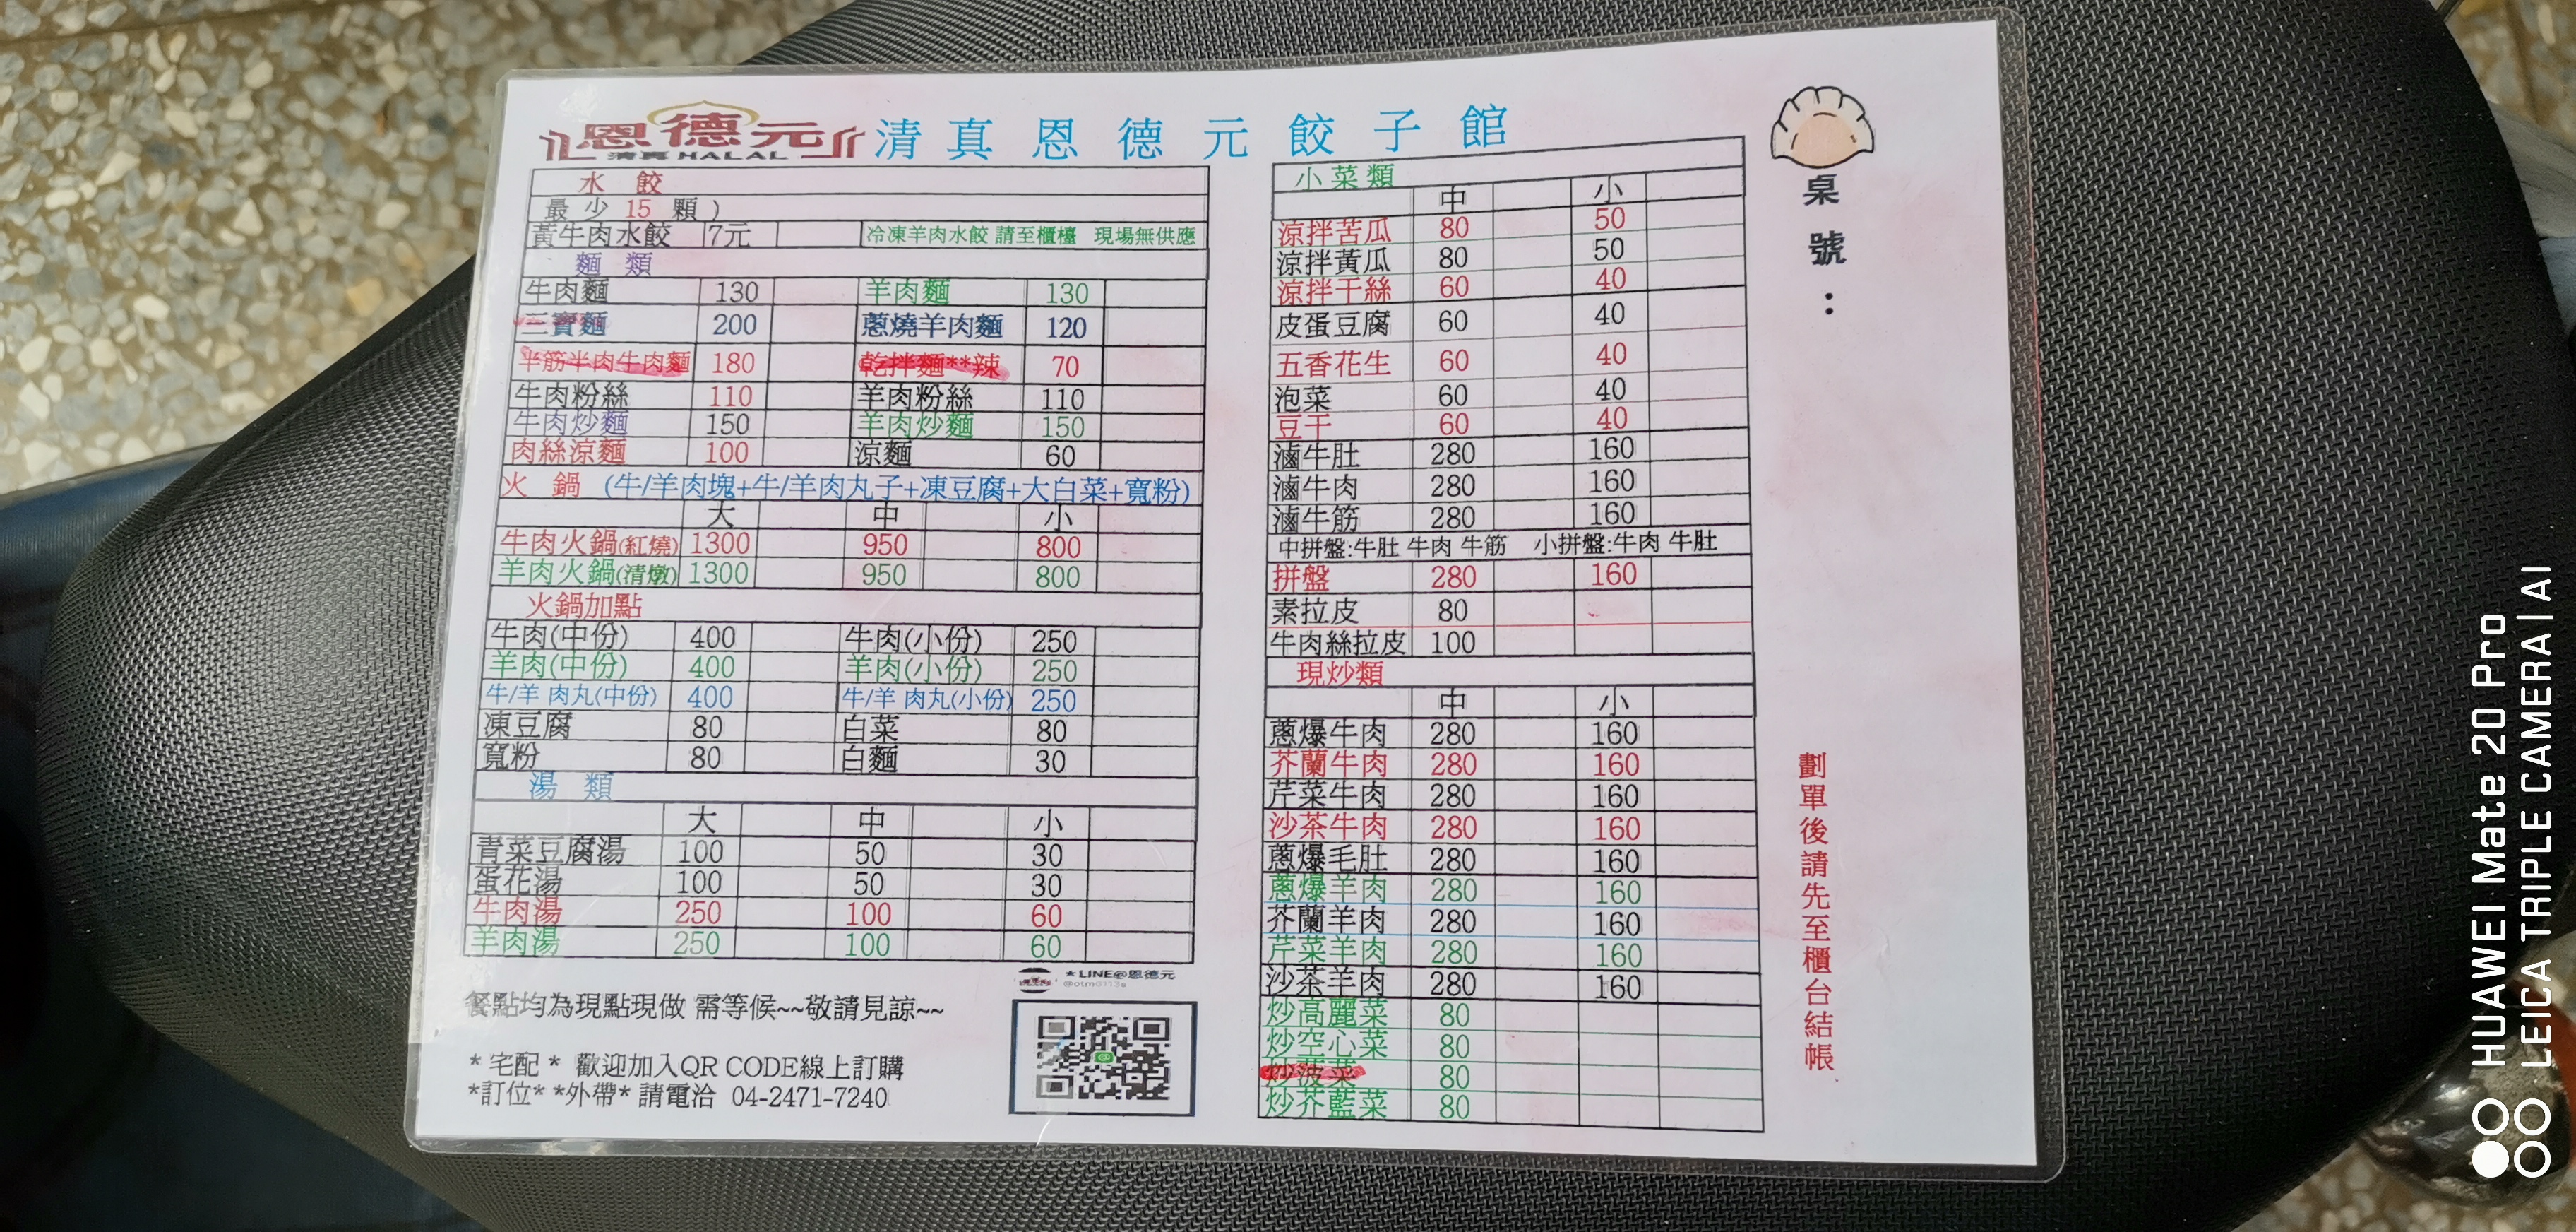 恩德元
清真 HALAL
清真恩德元餃子館
水 餃
最少 15 顆 )
黃牛肉水餃 7元 冷凍羊肉水餃 請至櫃檯 現場無供應
麵 類
牛肉麵 130 羊肉麵 130
三寶麵 200 蔥燒羊肉麵 120
半筋半肉牛肉麵 180 乾拌麵**辣 70
牛肉粉絲 110 羊肉粉絲 110
牛肉炒麵 150 羊肉炒麵 150
肉絲涼麵 100 涼麵 60
火 鍋 (牛/羊肉塊+牛/羊肉丸子+凍豆腐+大白菜+寬粉)
大 中 小
牛肉火鍋(紅燒) 1300 950 800
羊肉火鍋(清燉) 1300 950 800
火鍋加點
牛肉(中份) 400 牛肉(小份) 250
羊肉(中份) 400 羊肉(小份) 250
牛/羊 肉丸(中份) 400 牛/羊 肉丸(小份) 250
凍豆腐 80 白菜 80
寬粉 80 白麵 30
湯 類
大 中 小
青菜豆腐湯 100 50 30
蛋花湯 100 50 30
牛肉湯 250 100 60
羊肉湯 250 100 60
★LINE@恩德元
餐點均為現點現做 需等候~~敬請見諒~~
* 宅配 * 歡迎加入QR CODE線上訂購
*訂位* *外帶* 請電洽 04-2471-7240
小菜類
中 小
涼拌苦瓜 80 50
涼拌黃瓜 80 50
涼拌干絲 60 40
皮蛋豆腐 60 40
五香花生 60 40
泡菜 60 40
豆干 60 40
滷牛肚 280 160
滷牛肉 280 160
滷牛筋 280 160
中拼盤:牛肚 牛肉 牛筋 小拼盤:牛肉 牛肚
拼盤 280 160
素拉皮 80
牛肉絲拉皮 100
現炒類
中 小
蔥爆牛肉 280 160
芥蘭牛肉 280 160
芹菜牛肉 280 160
沙茶牛肉 280 160
蔥爆毛肚 280 160
蔥爆羊肉 280 160
芥蘭羊肉 280 160
芹菜羊肉 280 160
沙茶羊肉 280 160
炒高麗菜 80
炒空心菜 80
炒菠菜 80
炒芥藍菜 80
桌號：
劃單後請先至櫃台結帳
HUAWEI Mate 20 Pro
LEICA TRIPLE CAMERA | AI